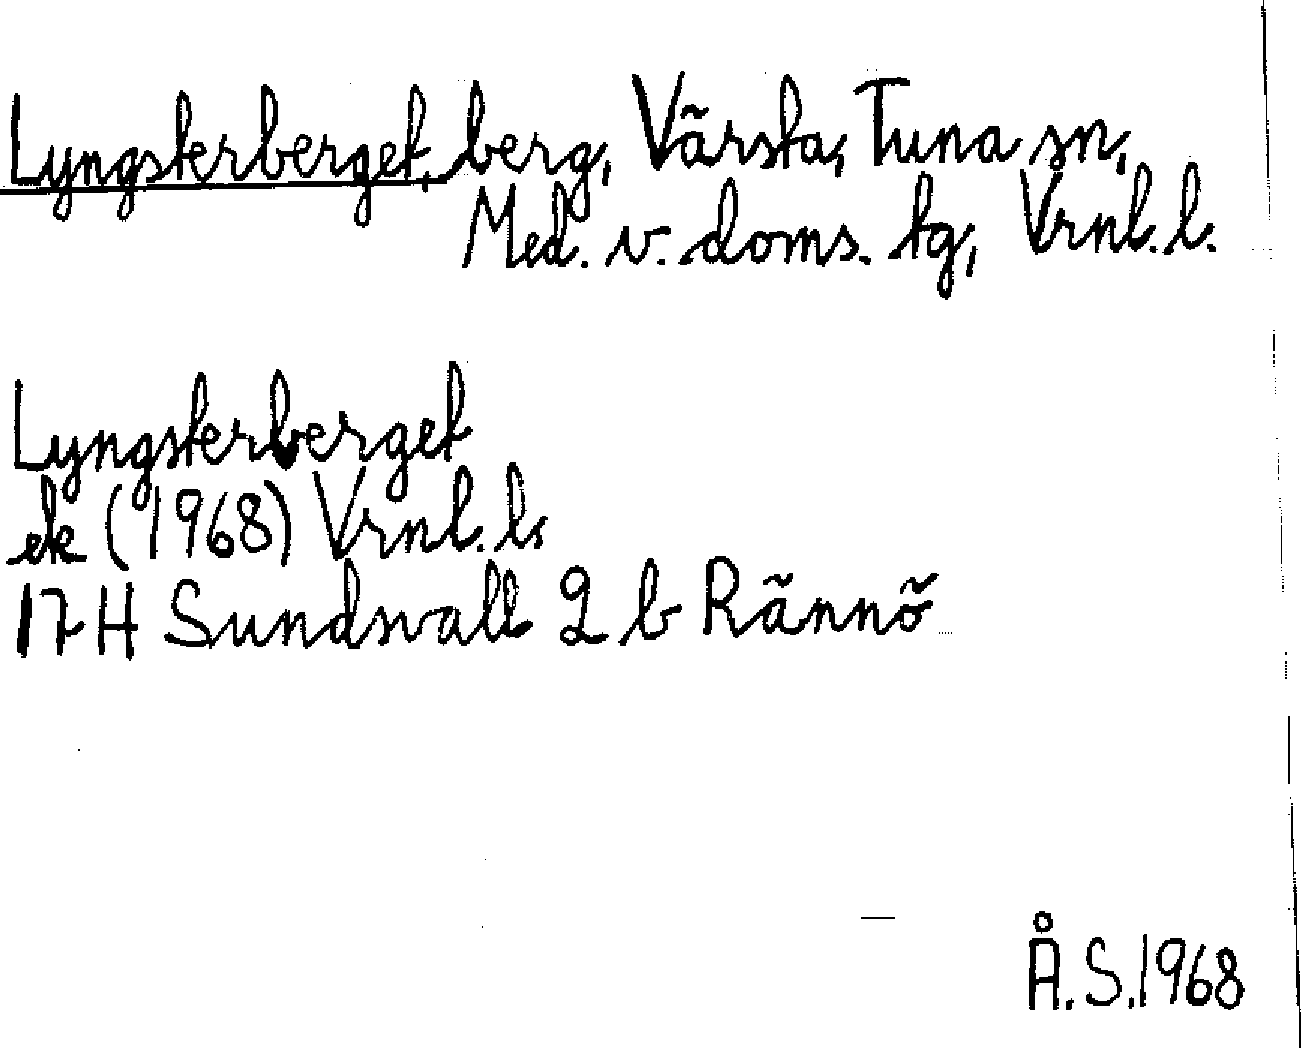 Lyngsterberget, berg, Värsta, Tuna sn,
Med. v. doms. tg, Vrnl. l.
Lyngsterberget
ek (1968) Vrnl. l.
17H Sundsvall 2 b Rännö
Å.S.1968